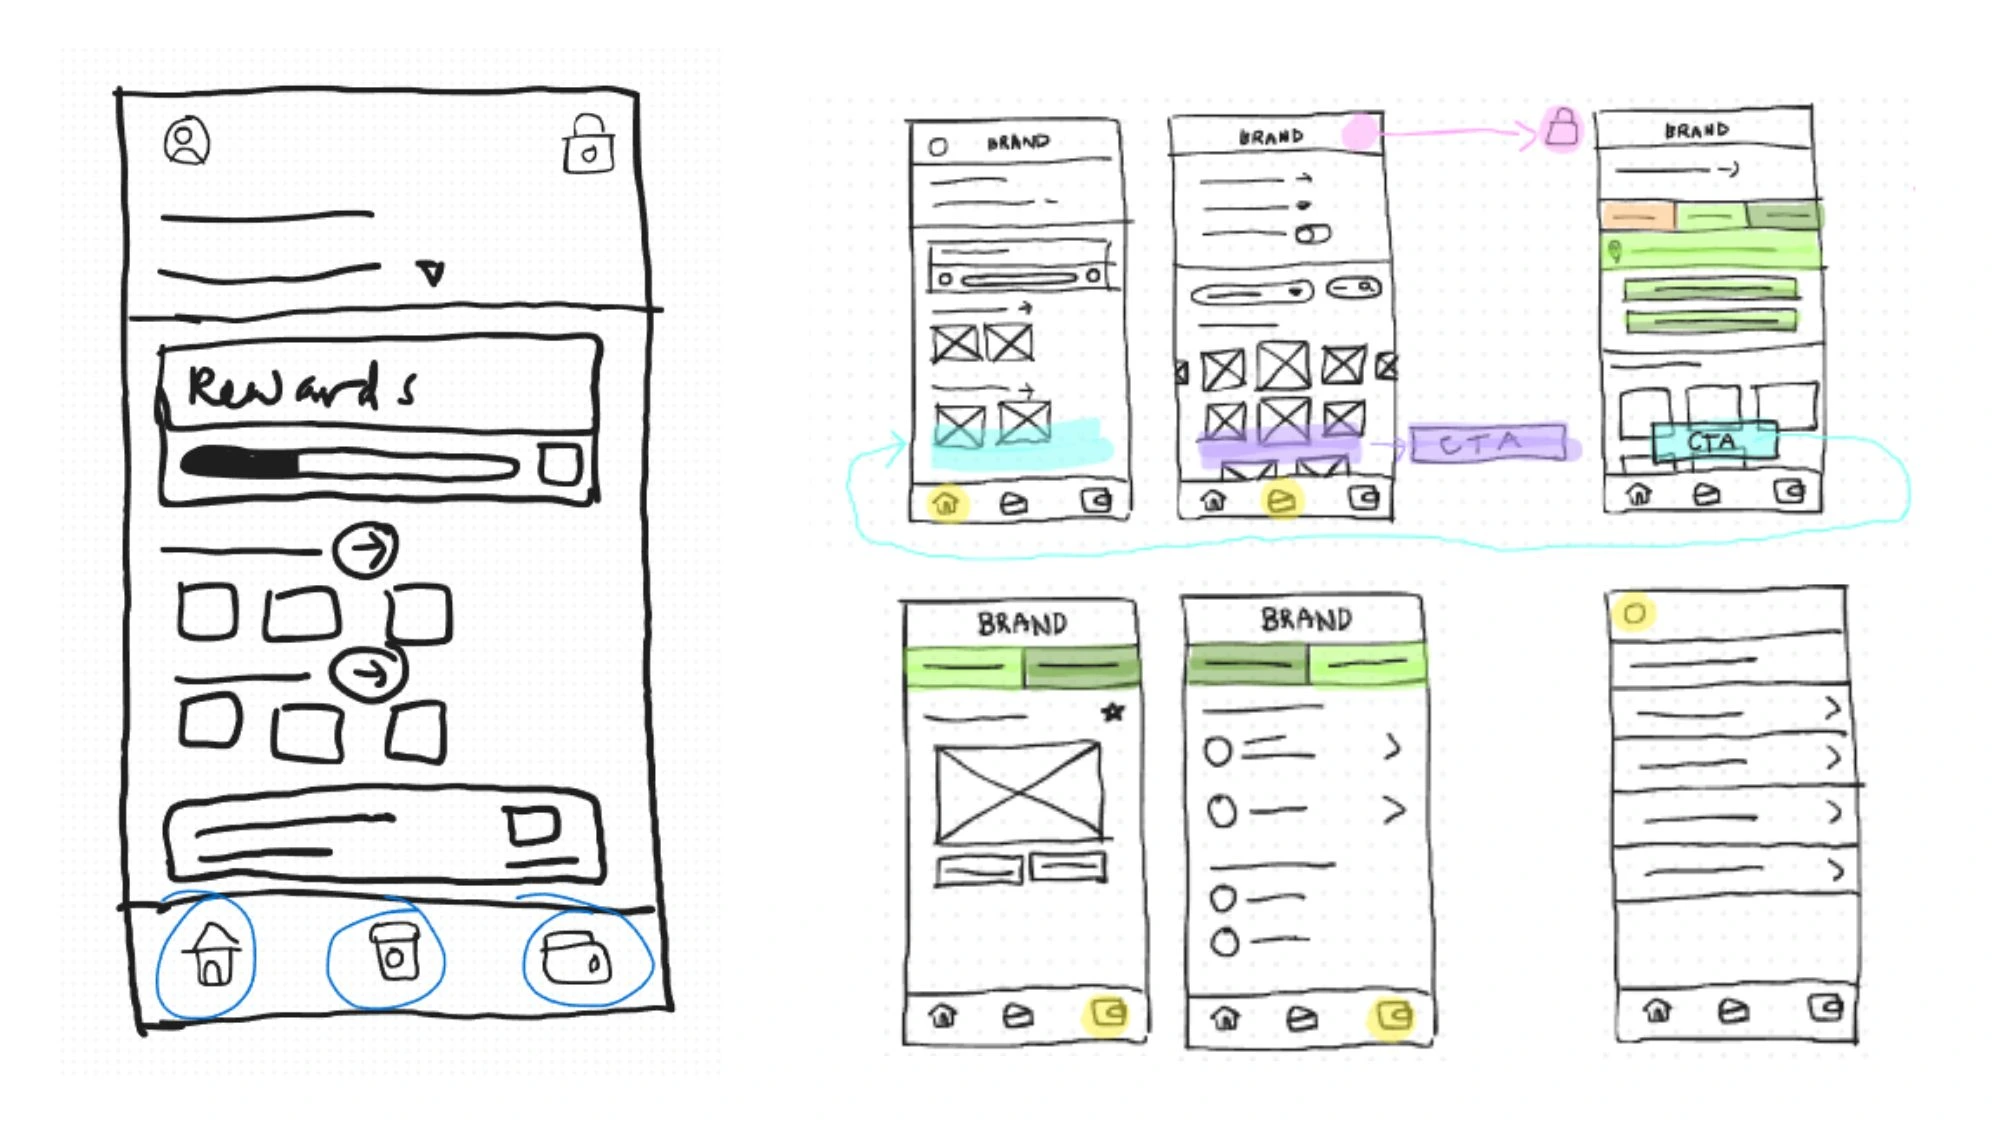 Rewards
BRAND
BRAND
BRAND
CTA
CTA
BRAND
BRAND